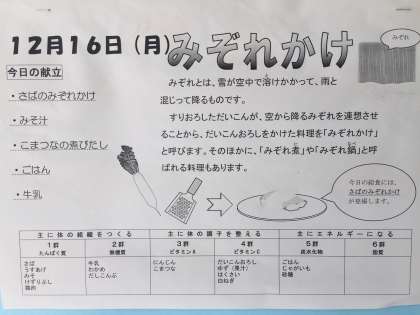 12月16日（月）みぞれかけ
みぞれ
今日の献立
・さばのみぞれかけ
・みそ汁
・こまつなの煮びたし
・ごはん
・牛乳
みぞれとは、雪が空中で溶けかかって、雨と
混じって降るものです。
すりおろしただいこんが、空から降るみぞれを連想させ
ることから、だいこんおろしをかけた料理を「みぞれかけ」
と呼びます。そのほかに、「みぞれ煮」や「みぞれ鍋」と呼
ばれる料理もあります。
今日の給食には、
さばのみぞれかけ
が登場します。
主に体の組織をつくる 主に体の調子を整える 主にエネルギーになる
1群 2群 3群 4群 5群 6群
たんぱく質 無機質 ビタミンA ビタミンC 炭水化物 脂質
さば 牛乳 にんじん だいこんおろし ごはん
うすあげ わかめ こまつな ゆず（果汁） じゃがいも
みそ だしこんぶ はくさい 砂糖
けずりぶし 白ねぎ